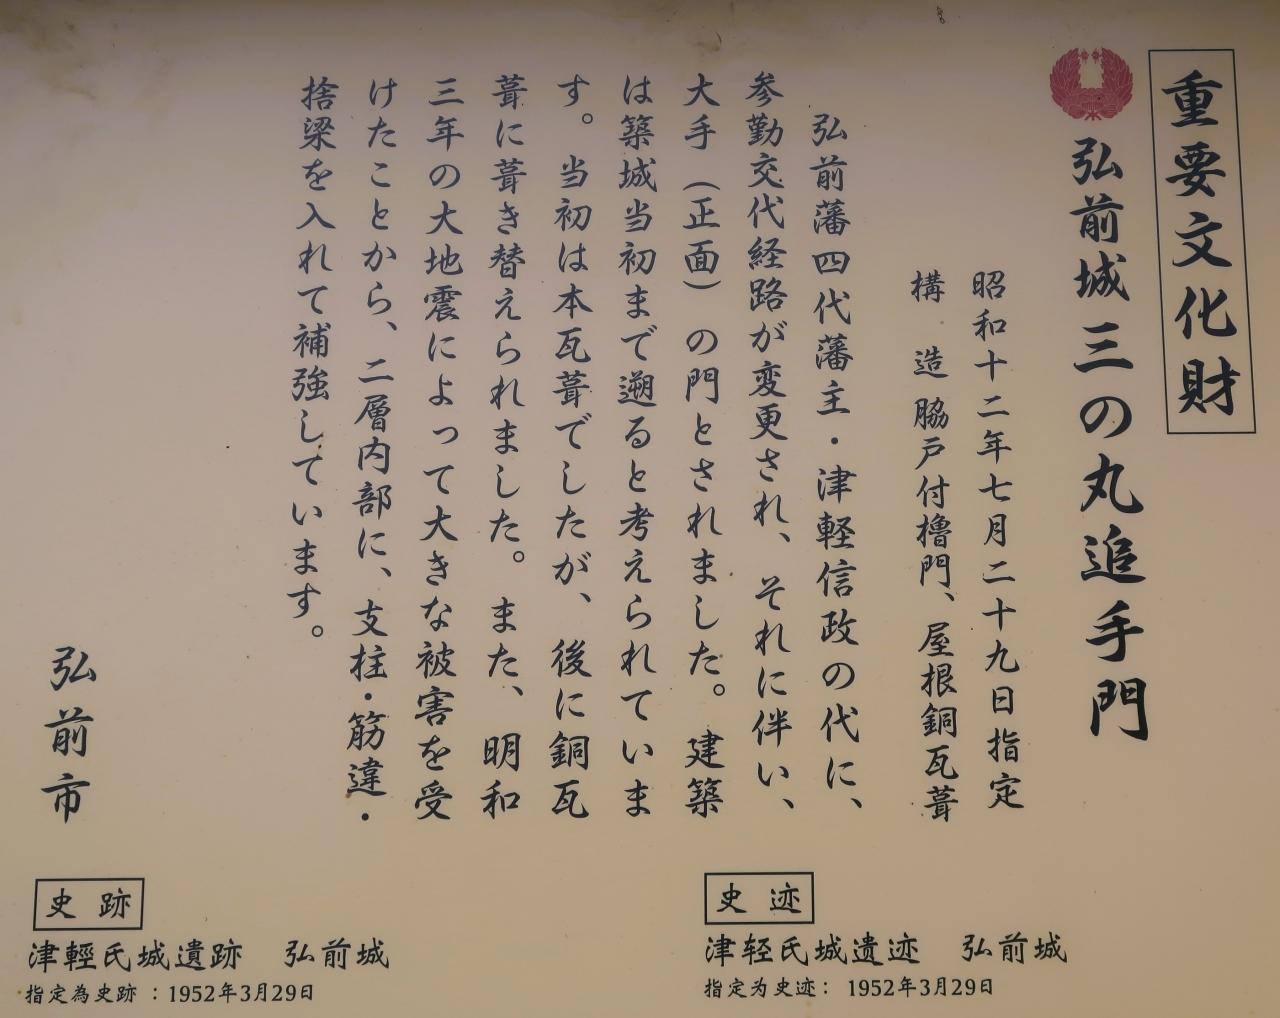 重要文化財
弘前城三の丸追手門
昭和十二年七月二十九日指定
構　造　脇戸付櫓門、屋根銅瓦葺
弘前藩四代藩主・津軽信政の代に、
参勤交代経路が変更され、それに伴い、
大手（正面）の門とされました。建築
は築城当初まで遡ると考えられていま
す。当初は本瓦葺でしたが、後に銅瓦
葺に葺き替えられました。また、明和
三年の大地震によって大きな被害を受
けたことから、二層内部に、支柱・筋違・
捨梁を入れて補強しています。
弘前市
史跡
津輕氏城遺跡　弘前城
指定為史跡：1952年3月29日
史迹
津轻氏城遗迹　弘前城
指定为史迹：1952年3月29日